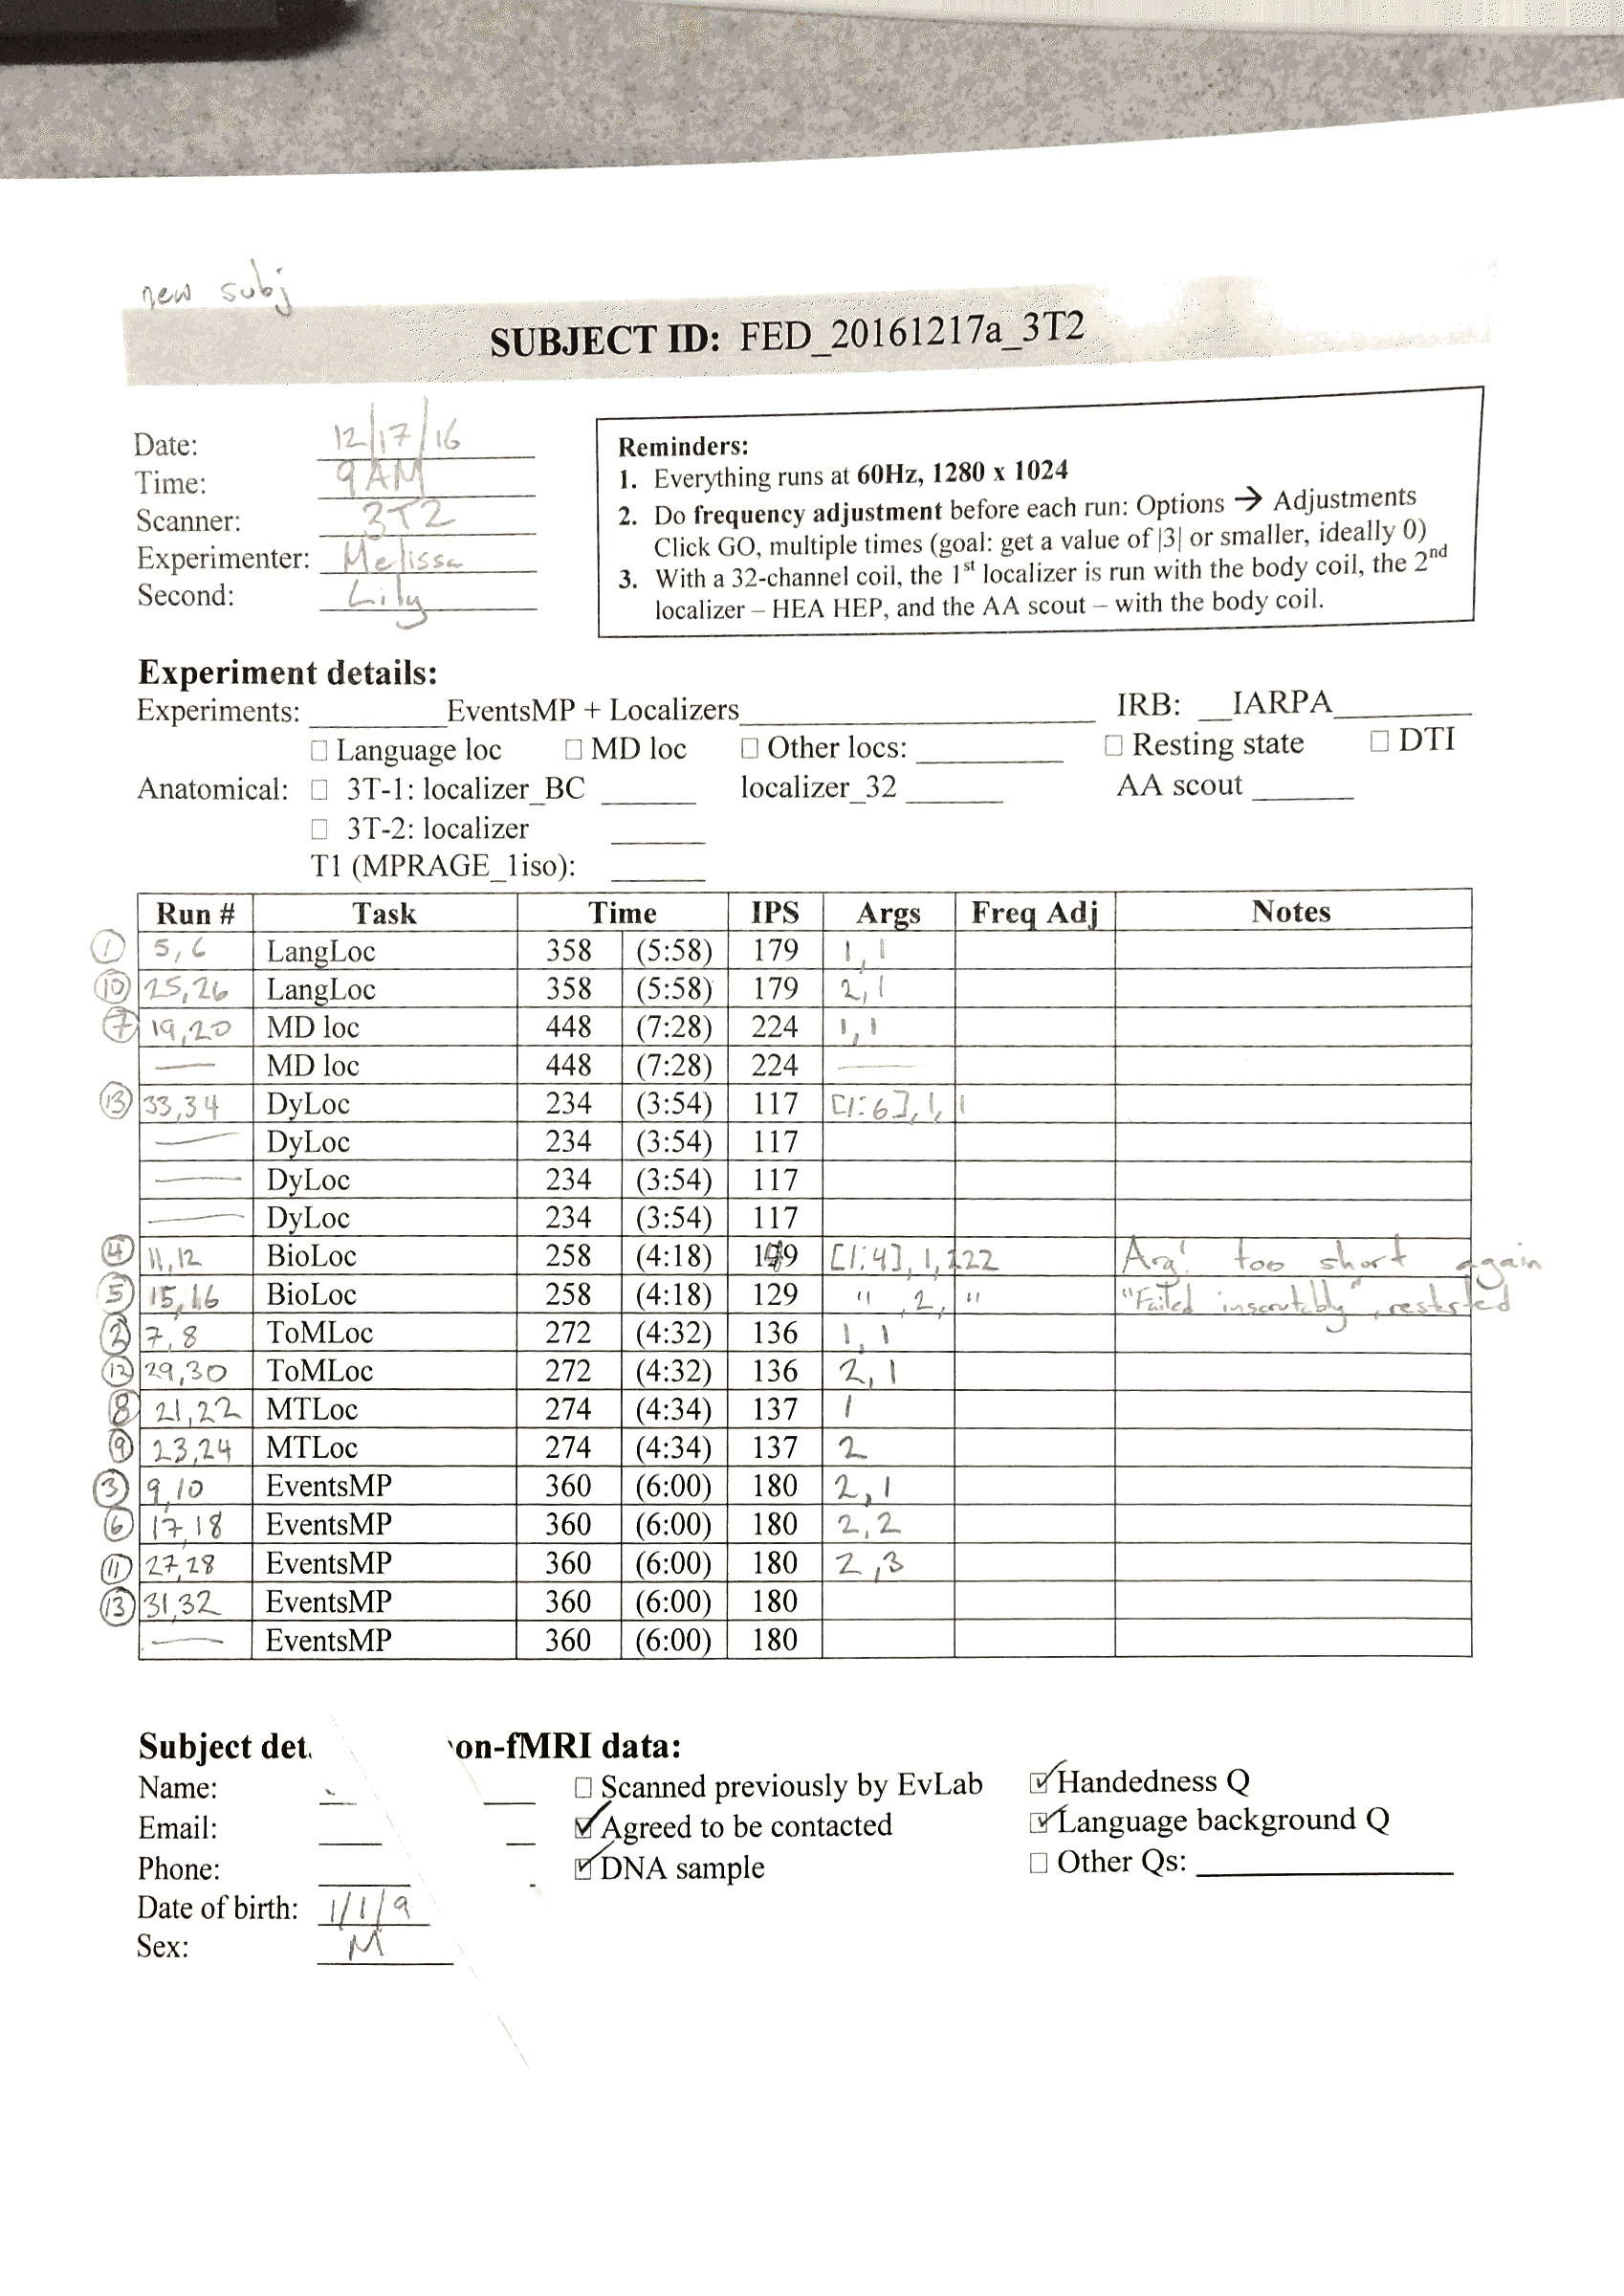 new subj
SUBJECT ID: FED_20161217a_3T2
Date: 12/17/16
Time: 9AM
Scanner: 3T2
Experimenter: Melissa
Second: Lily
Reminders:
1. Everything runs at 60Hz, 1280 x 1024
2. Do frequency adjustment before each run: Options → Adjustments
Click GO, multiple times (goal: get a value of |3| or smaller, ideally 0)
3. With a 32-channel coil, the 1st localizer is run with the body coil, the 2nd
localizer – HEA HEP, and the AA scout – with the body coil.
Experiment details:
Experiments: ________EventsMP + Localizers____________________ IRB: __IARPA________
☐ Language loc ☐ MD loc ☐ Other locs: ________ ☐ Resting state ☐ DTI
Anatomical: ☐ 3T-1: localizer_BC ______ localizer_32 ______ AA scout ______
☐ 3T-2: localizer ______
T1 (MPRAGE_1iso): ______
Run # Task Time IPS Args Freq Adj Notes
① 5,6 LangLoc 358 (5:58) 179 1,1
⑩ 25,26 LangLoc 358 (5:58) 179 2,1
⑦ 19,20 MD loc 448 (7:28) 224 1,1
— MD loc 448 (7:28) 224 —
⑬ 33,34 DyLoc 234 (3:54) 117 [1:6],1,1
— DyLoc 234 (3:54) 117
— DyLoc 234 (3:54) 117
— DyLoc 234 (3:54) 117
④ 11,12 BioLoc 258 (4:18) [1:4],1,222 Arg! too short again
⑤ 15,16 BioLoc 258 (4:18) 129 " ,2, " "Failed inscrutably", restrted
② 7,8 ToMLoc 272 (4:32) 136 1,1
⑫ 29,30 ToMLoc 272 (4:32) 136 2,1
⑧ 21,22 MTLoc 274 (4:34) 137 1
⑨ 23,24 MTLoc 274 (4:34) 137 2
③ 9,10 EventsMP 360 (6:00) 180 2,1
⑥ 17,18 EventsMP 360 (6:00) 180 2,2
⑪ 27,28 EventsMP 360 (6:00) 180 2,3
⑬ 31,32 EventsMP 360 (6:00) 180
— EventsMP 360 (6:00) 180
Subject det on-fMRI data:
Name: ☐ Scanned previously by EvLab ☑ Handedness Q
Email: ☑ Agreed to be contacted ☑ Language background Q
Phone: ☑ DNA sample ☐ Other Qs: ________
Date of birth: 1/1/9
Sex: M